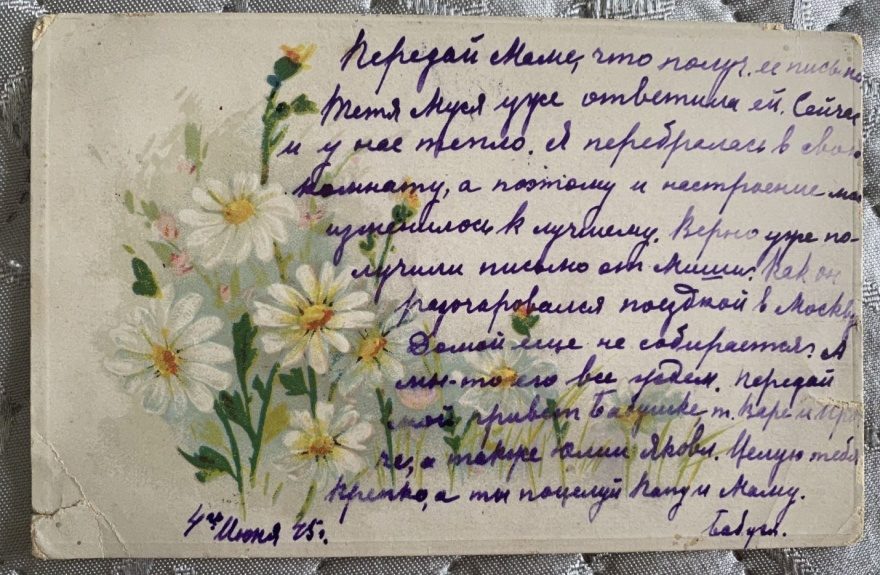 Передай Маме, что получ. ее письмо
Тетя Муся уже ответила ей. Сейчас
и у нас тепло. Я перебралась в свою
комнату, а поэтому и настроение мое
изменилось к лучшему. Верно уже по-
лучили письмо от Миши. Как он
разочаровался поездкой в Москву
Домой еще не собирается? А
мы-то его все ждем. Передай
мой привет Бабушке, т. Варе и
че, а также Юлии Яковл. Целую тебя
крепко, а ты поцелуй Папу и Маму.
4го Июня 25г. Бабуся.